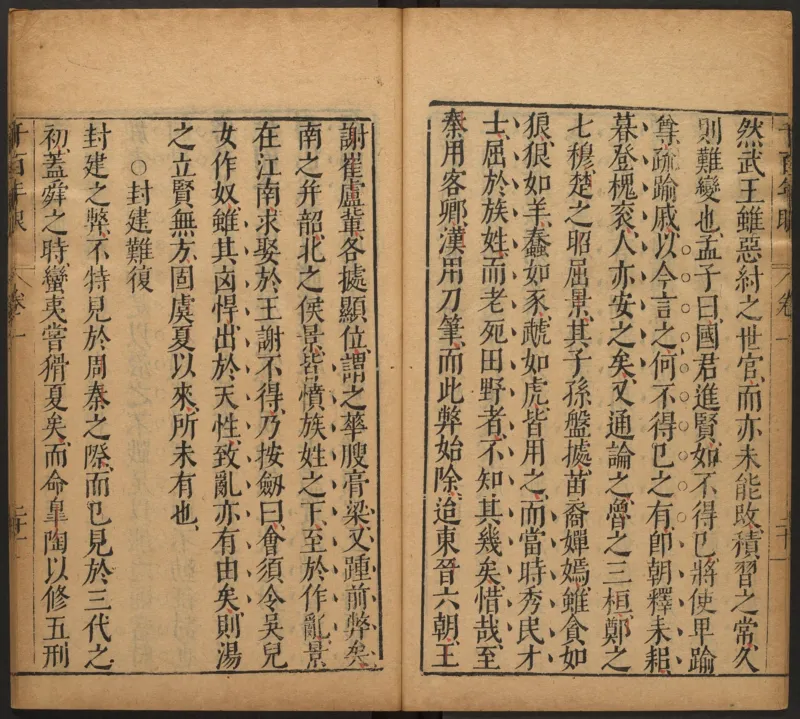 然武王雖惡紂之世官而亦未能改積習之常久
則難變也孟子曰國君進賢如不得已將使卑踰
尊疏踰戚以今言之何不得已之有卽朝釋耒耜
暮登槐衮人亦安之矣又通論之魯之三桓鄭之
七穆楚之昭屈景其子孫盤據苗裔嬋嫣雖貪如
狼狠如羊蠢如豕虣如虎皆用之而當時秀民才
士屈於族姓而老死田野者不知其幾矣惜哉至
秦用客卿漢用刀筆而此弊始除迨東晉六朝王
謝崔盧輩各據顯位謂之華腴膏梁又踵前弊矣
南之并韶北之侯景皆憤族姓之下至於作亂景
在江南求娶於王謝不得乃按劒曰會須令吳兒
女作奴雖其凶悍出於天性致亂亦有由矣則湯
之立賢無方固虞夏以來所未有也
○封建難復
封建之弊不特見於周秦之際而已見於三代之
初蓋舜之時蠻夷嘗猾夏矣而命臯陶以修五刑
千百年眼 卷一